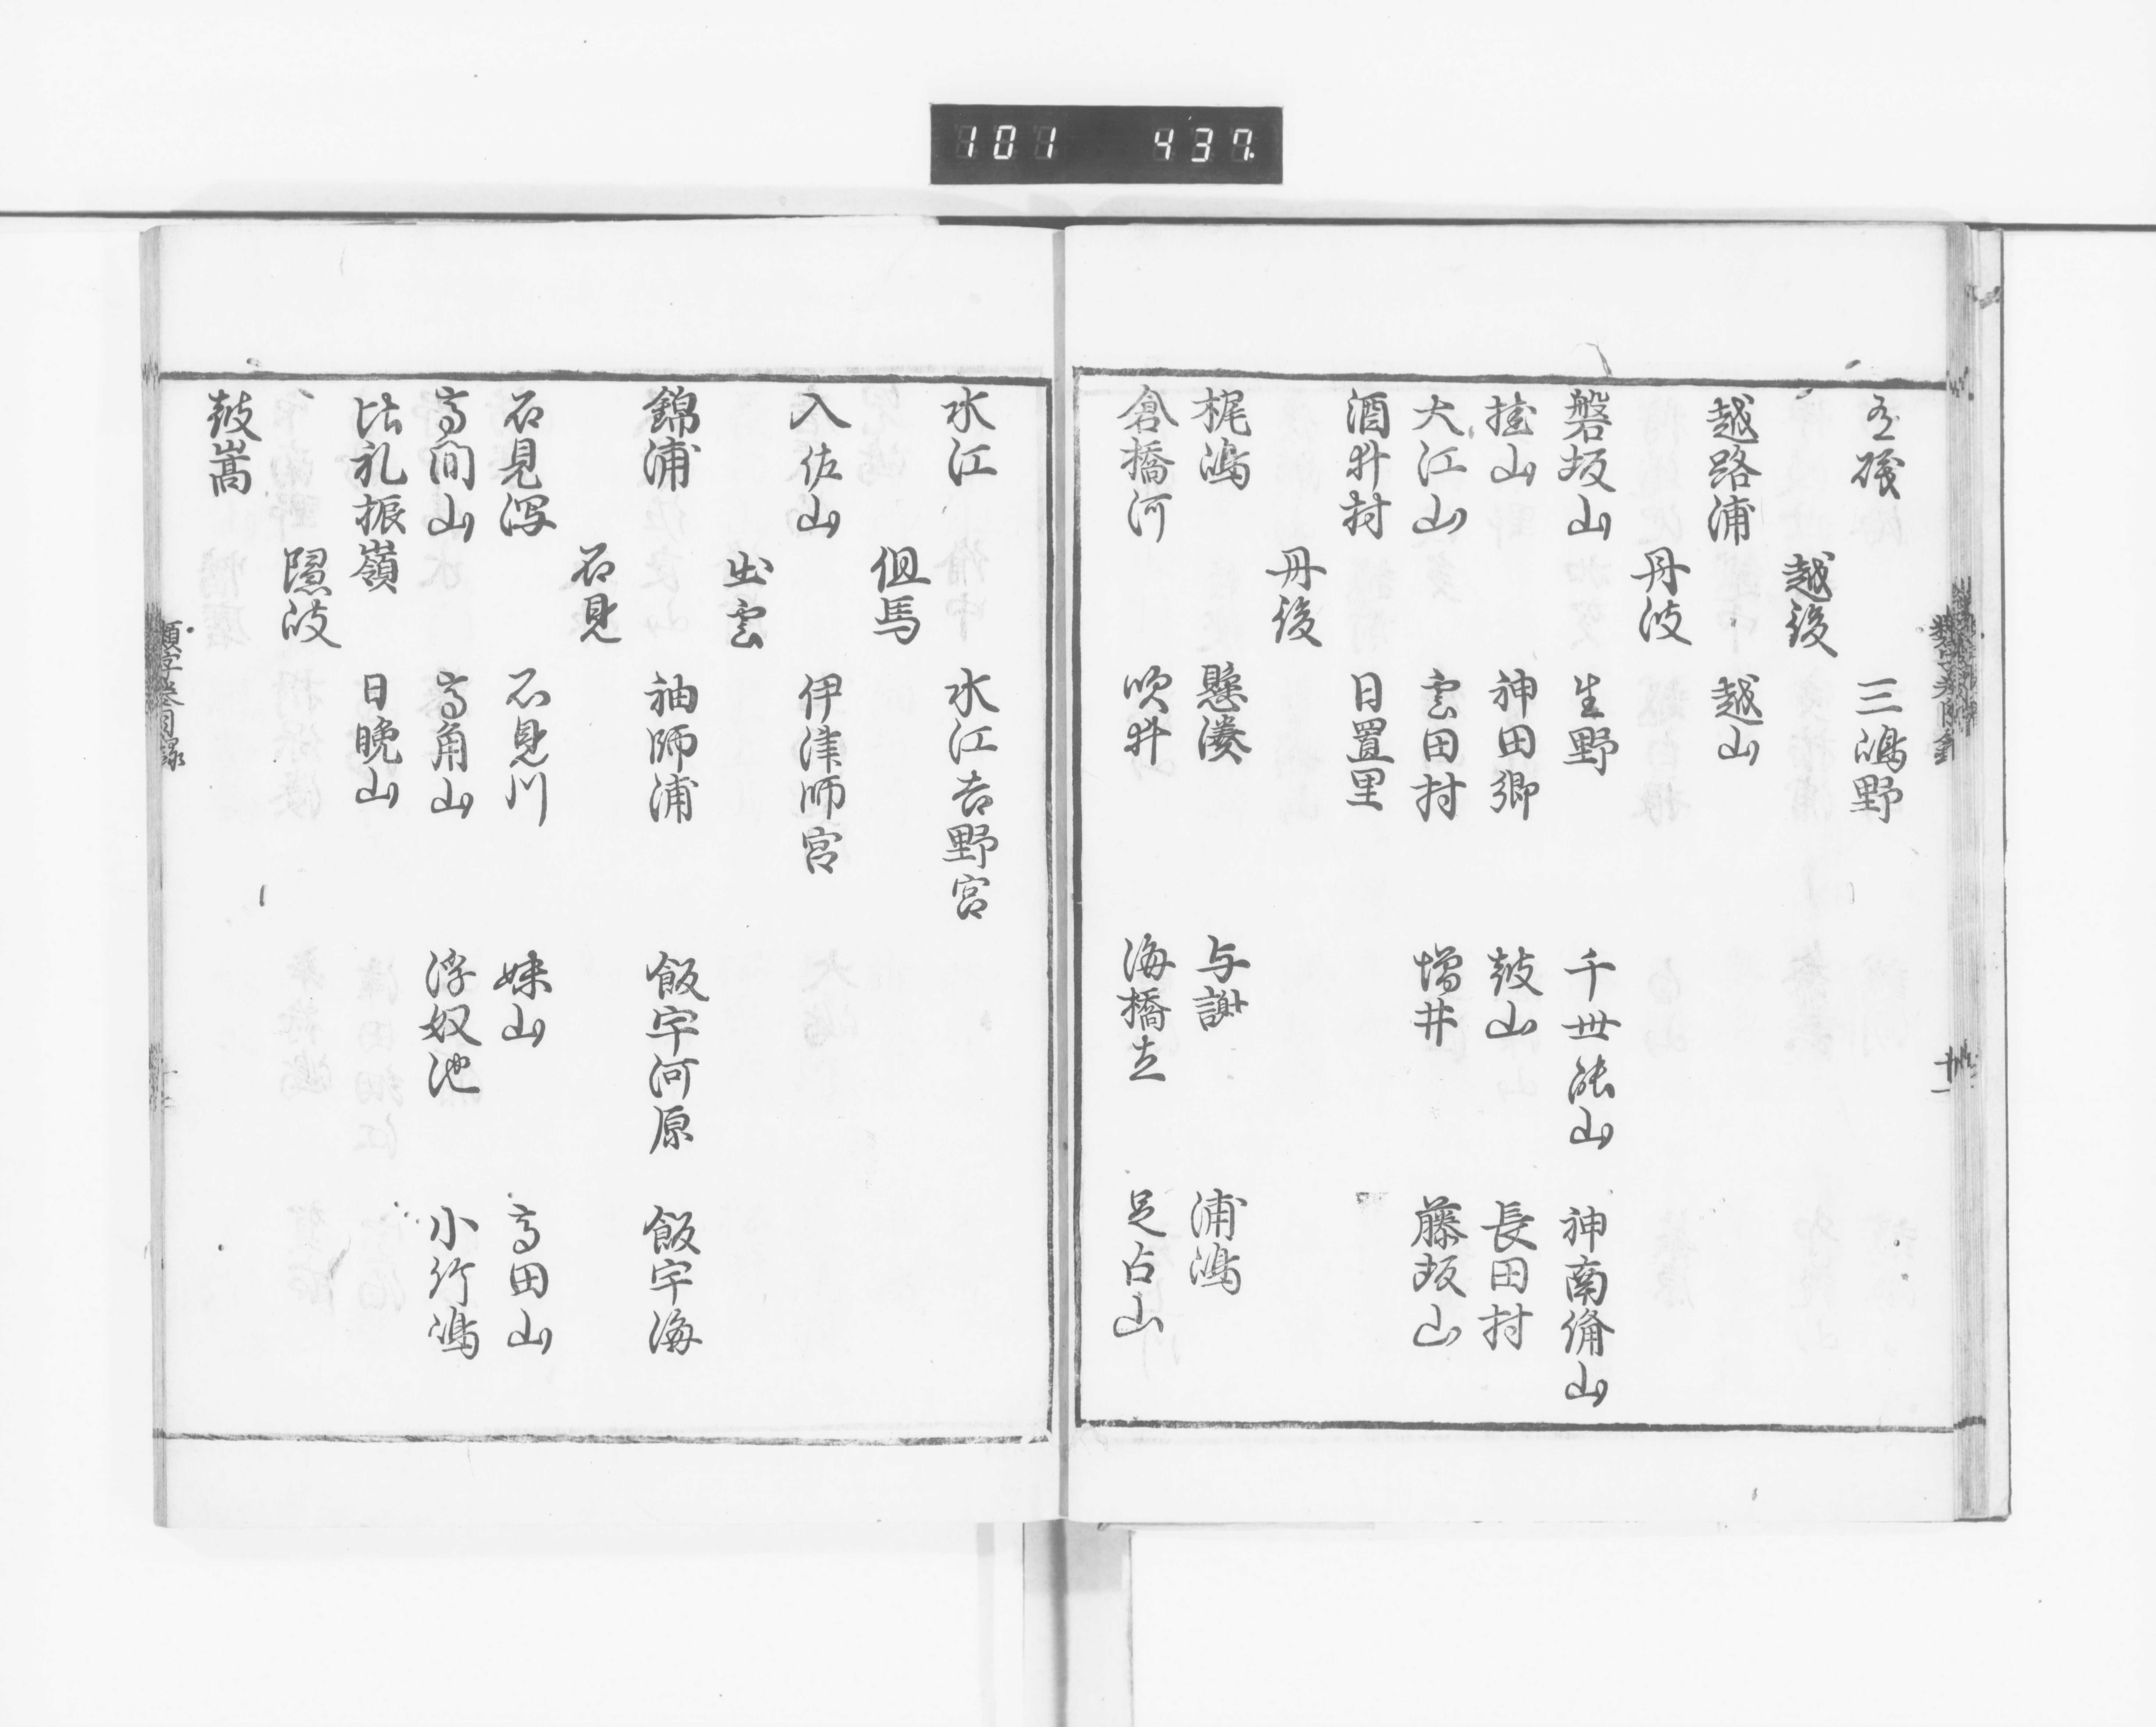 101 437
互礒 三嶋野
越後
越路浦 越山
丹波
磐坂山 生野 千世能山 神南備山
挂山 神田郷 鼓山 長田村
大江山 雲田村 増井 藤坂山
酒井村 日置里
丹後
梶嶋 懸湊 与謝 浦嶋
倉橋河 吹井 海橋立 足占山
水江 水江吉野宮
但馬
入佐山 伊津師宮
出雲
錦浦 袖師浦 飯宇河原 飯宇海
石見
石見潟 石見川 妹山 高田山
高間山 高角山 浮奴池 小竹嶋
比礼振嶺 日晩山
隠岐
鼓嵩
類字巻目録